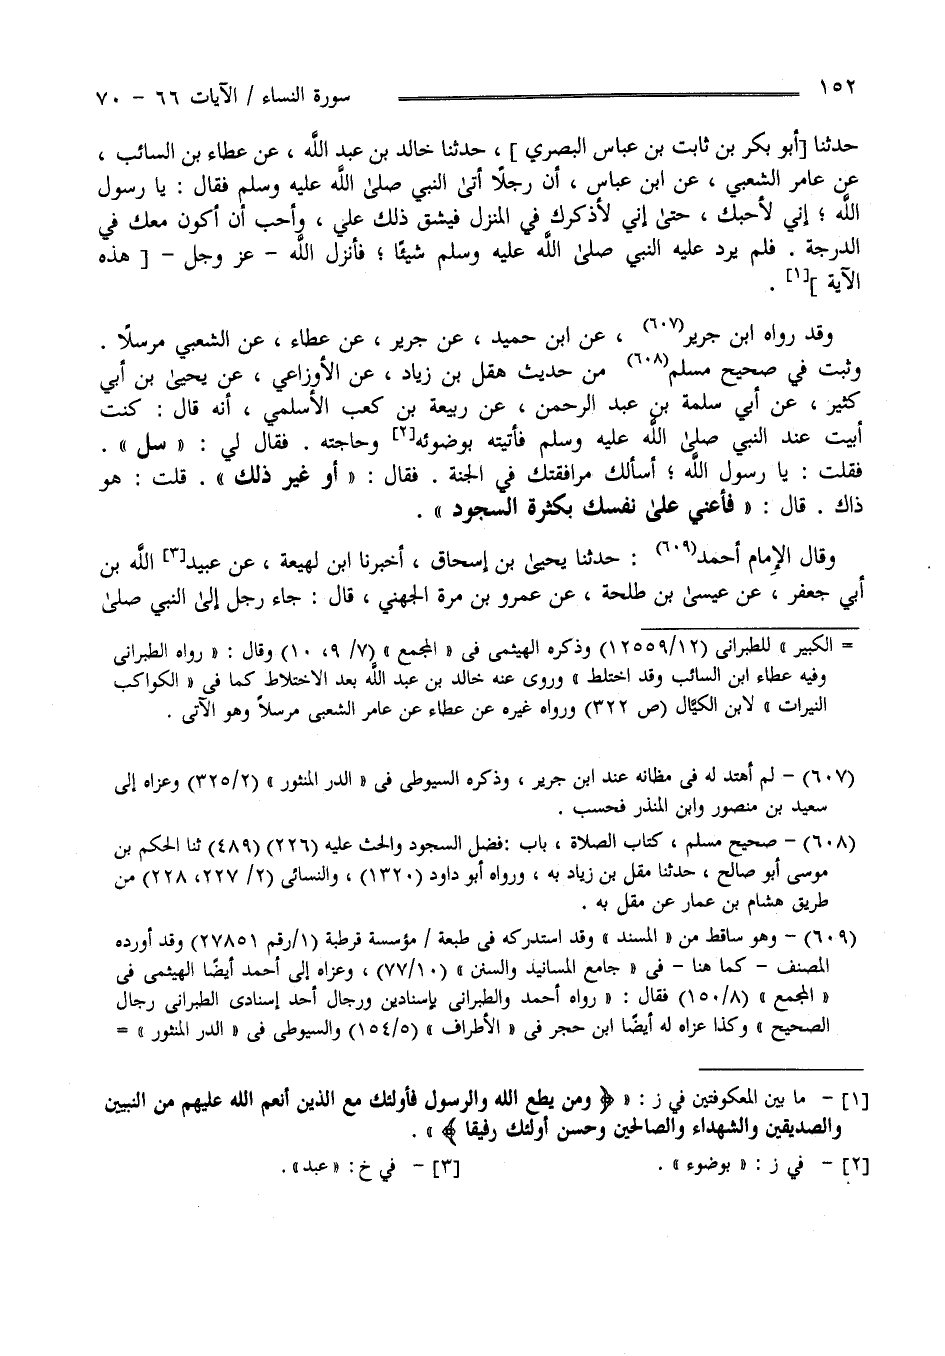 ١٥٢ سورة النساء / الآيات ٦٦ - ٧٠
حدثنا [أبو بكر بن ثابت بن عباس البصري ] ، حدثنا خالد بن عبد اللَّه ، عن عطاء بن السائب ،
عن عامر الشعبي ، عن ابن عباس ، أن رجلًا أتىٰ النبي صلىٰ اللَّه عليه وسلم فقال : يا رسول
اللَّه ؛ إني لأحبك ، حتىٰ إني لأذكرك في المنزل فيشق ذلك علي ، وأحب أن أكون معك في
الدرجة . فلم يرد عليه النبي صلىٰ اللَّه عليه وسلم شيئًا ؛ فأنزل اللَّه - عز وجل - [ هذه
الآية ][١] .
وقد رواه ابن جرير(٦٠٧) ، عن ابن حميد ، عن جرير ، عن عطاء ، عن الشعبي مرسلًا .
وثبت في صحيح مسلم(٦٠٨) من حديث هقل بن زياد ، عن الأوزاعي ، عن يحيىٰ بن أبي
كثير ، عن أبي سلمة بن عبد الرحمن ، عن ربيعة بن كعب الأسلمي ، أنه قال : كنت
أبيت عند النبي صلىٰ اللَّه عليه وسلم فأتيته بوضوئه[٢] وحاجته . فقال لي : « سل » .
فقلت : يا رسول اللَّه ؛ أسألك مرافقتك في الجنة . فقال : « أو غير ذلك » . قلت : هو
ذاك . قال : « فأعني علىٰ نفسك بكثرة السجود » .
وقال الإمام أحمد(٦٠٩) : حدثنا يحيىٰ بن إسحاق ، أخبرنا ابن لهيعة ، عن عبيد[٣] اللَّه بن
أبي جعفر ، عن عيسىٰ بن طلحة ، عن عمرو بن مرة الجهني ، قال : جاء رجل إلىٰ النبي صلىٰ
= الكبير » للطبرانى (١٢٥٥٩/١٢) وذكره الهيثمى فى « المجمع » (٧/ ٩، ١٠) وقال : « رواه الطبرانى
وفيه عطاء ابن السائب وقد اختلط » وروى عنه خالد بن عبد اللَّه بعد الاختلاط كما فى « الكواكب
النيرات » لابن الكيَّال (ص ٣٢٢) ورواه غيره عن عطاء عن عامر الشعبى مرسلاً وهو الآتى .
(٦٠٧) - لم أهتد له فى مظانه عند ابن جرير ، وذكره السيوطى فى « الدر المنثور » (٣٢٥/٢) وعزاه إلى
سعيد بن منصور وابن المنذر فحسب .
(٦٠٨) - صحيح مسلم ، كتاب الصلاة ، باب :فضل السجود والحث عليه (٢٢٦) (٤٨٩) ثنا الحكم بن
موسى أبو صالح ، حدثنا مقل بن زياد به ، ورواه أبو داود (١٣٢٠) ، والنسائى (٢/ ٢٢٧، ٢٢٨) من
طريق هشام بن عمار عن مقل به .
(٦٠٩) - وهو ساقط من « المسند » وقد استدركه فى طبعة / مؤسسة قرطبة (١/رقم ٢٧٨٥١) وقد أورده
المصنف - كما هنا - فى « جامع المسانيد والسنن » (٧٧/١٠) ، وعزاه إلى أحمد أيضًا الهيثمى فى
« المجمع » (١٥٠/٨) فقال : « رواه أحمد والطبرانى بإسنادين ورجال أحد إسنادى الطبرانى رجال
الصحيح » وكذا عزاه له أيضًا ابن حجر فى « الأطراف » (١٥٤/٥) والسيوطى فى « الدر المنثور » =
[١] - ما بين المعكوفتين في ز : « ﴿ ومن يطع الله والرسول فأولئك مع الذين أنعم الله عليهم من النبيين
والصديقين والشهداء والصالحين وحسن أولئك رفيقا ﴾ » .
[٢] - في ز : « بوضوء » . [٣] - في خ : « عبد» .